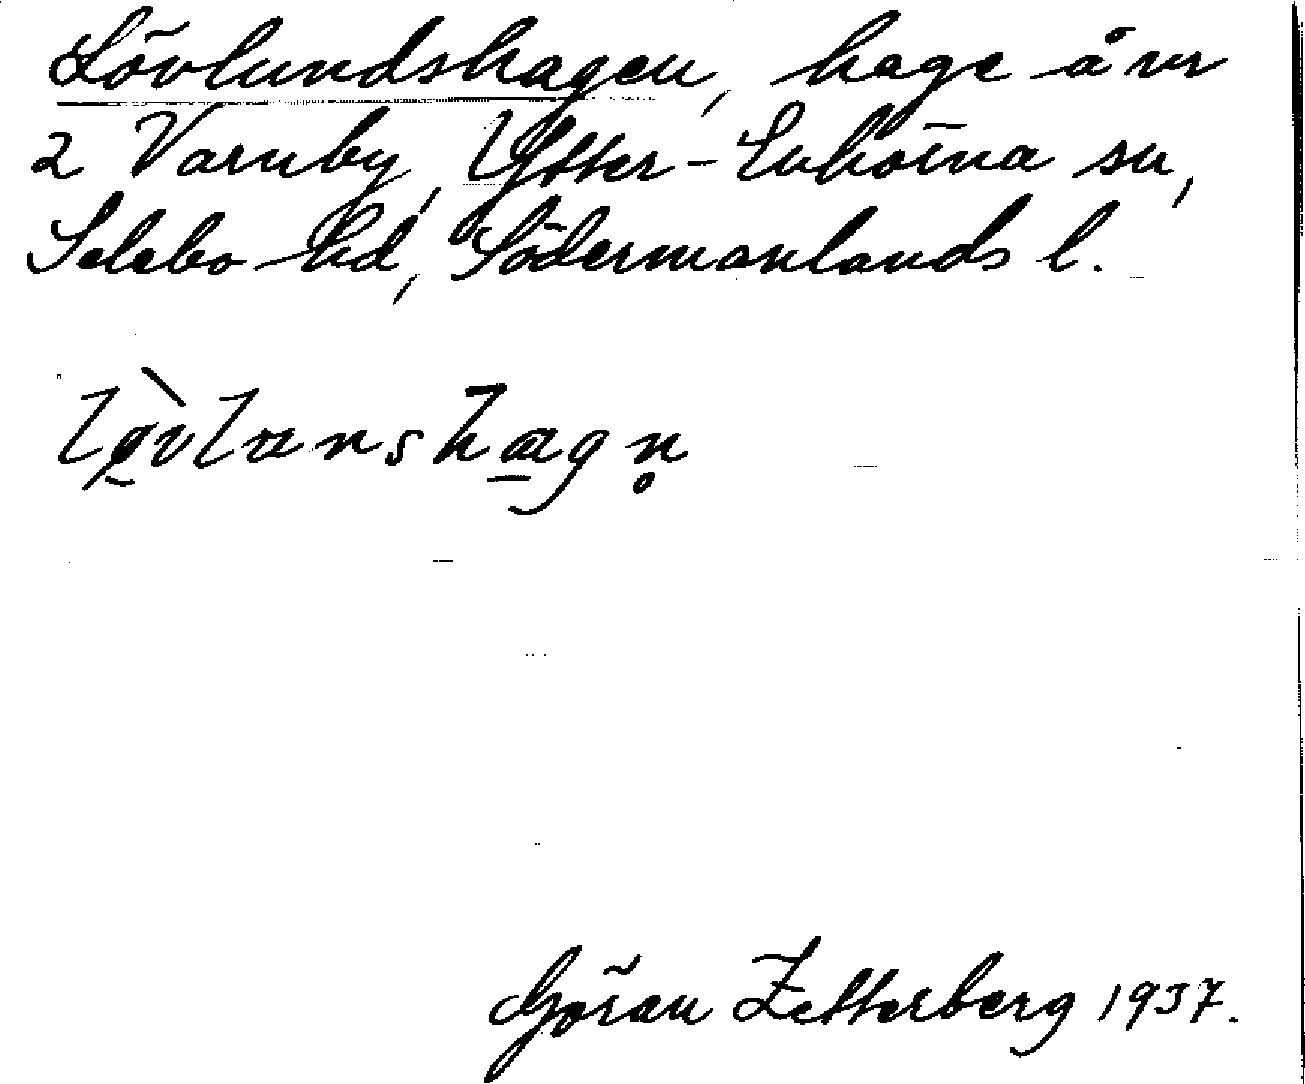 Lövlundshagen, hage å nr
2 Varnby, Ytter-Enhörna sn,
Selebo hd, Södermanlands l.
lø̀vlanshagn̥
Göran Zetterberg 1937.